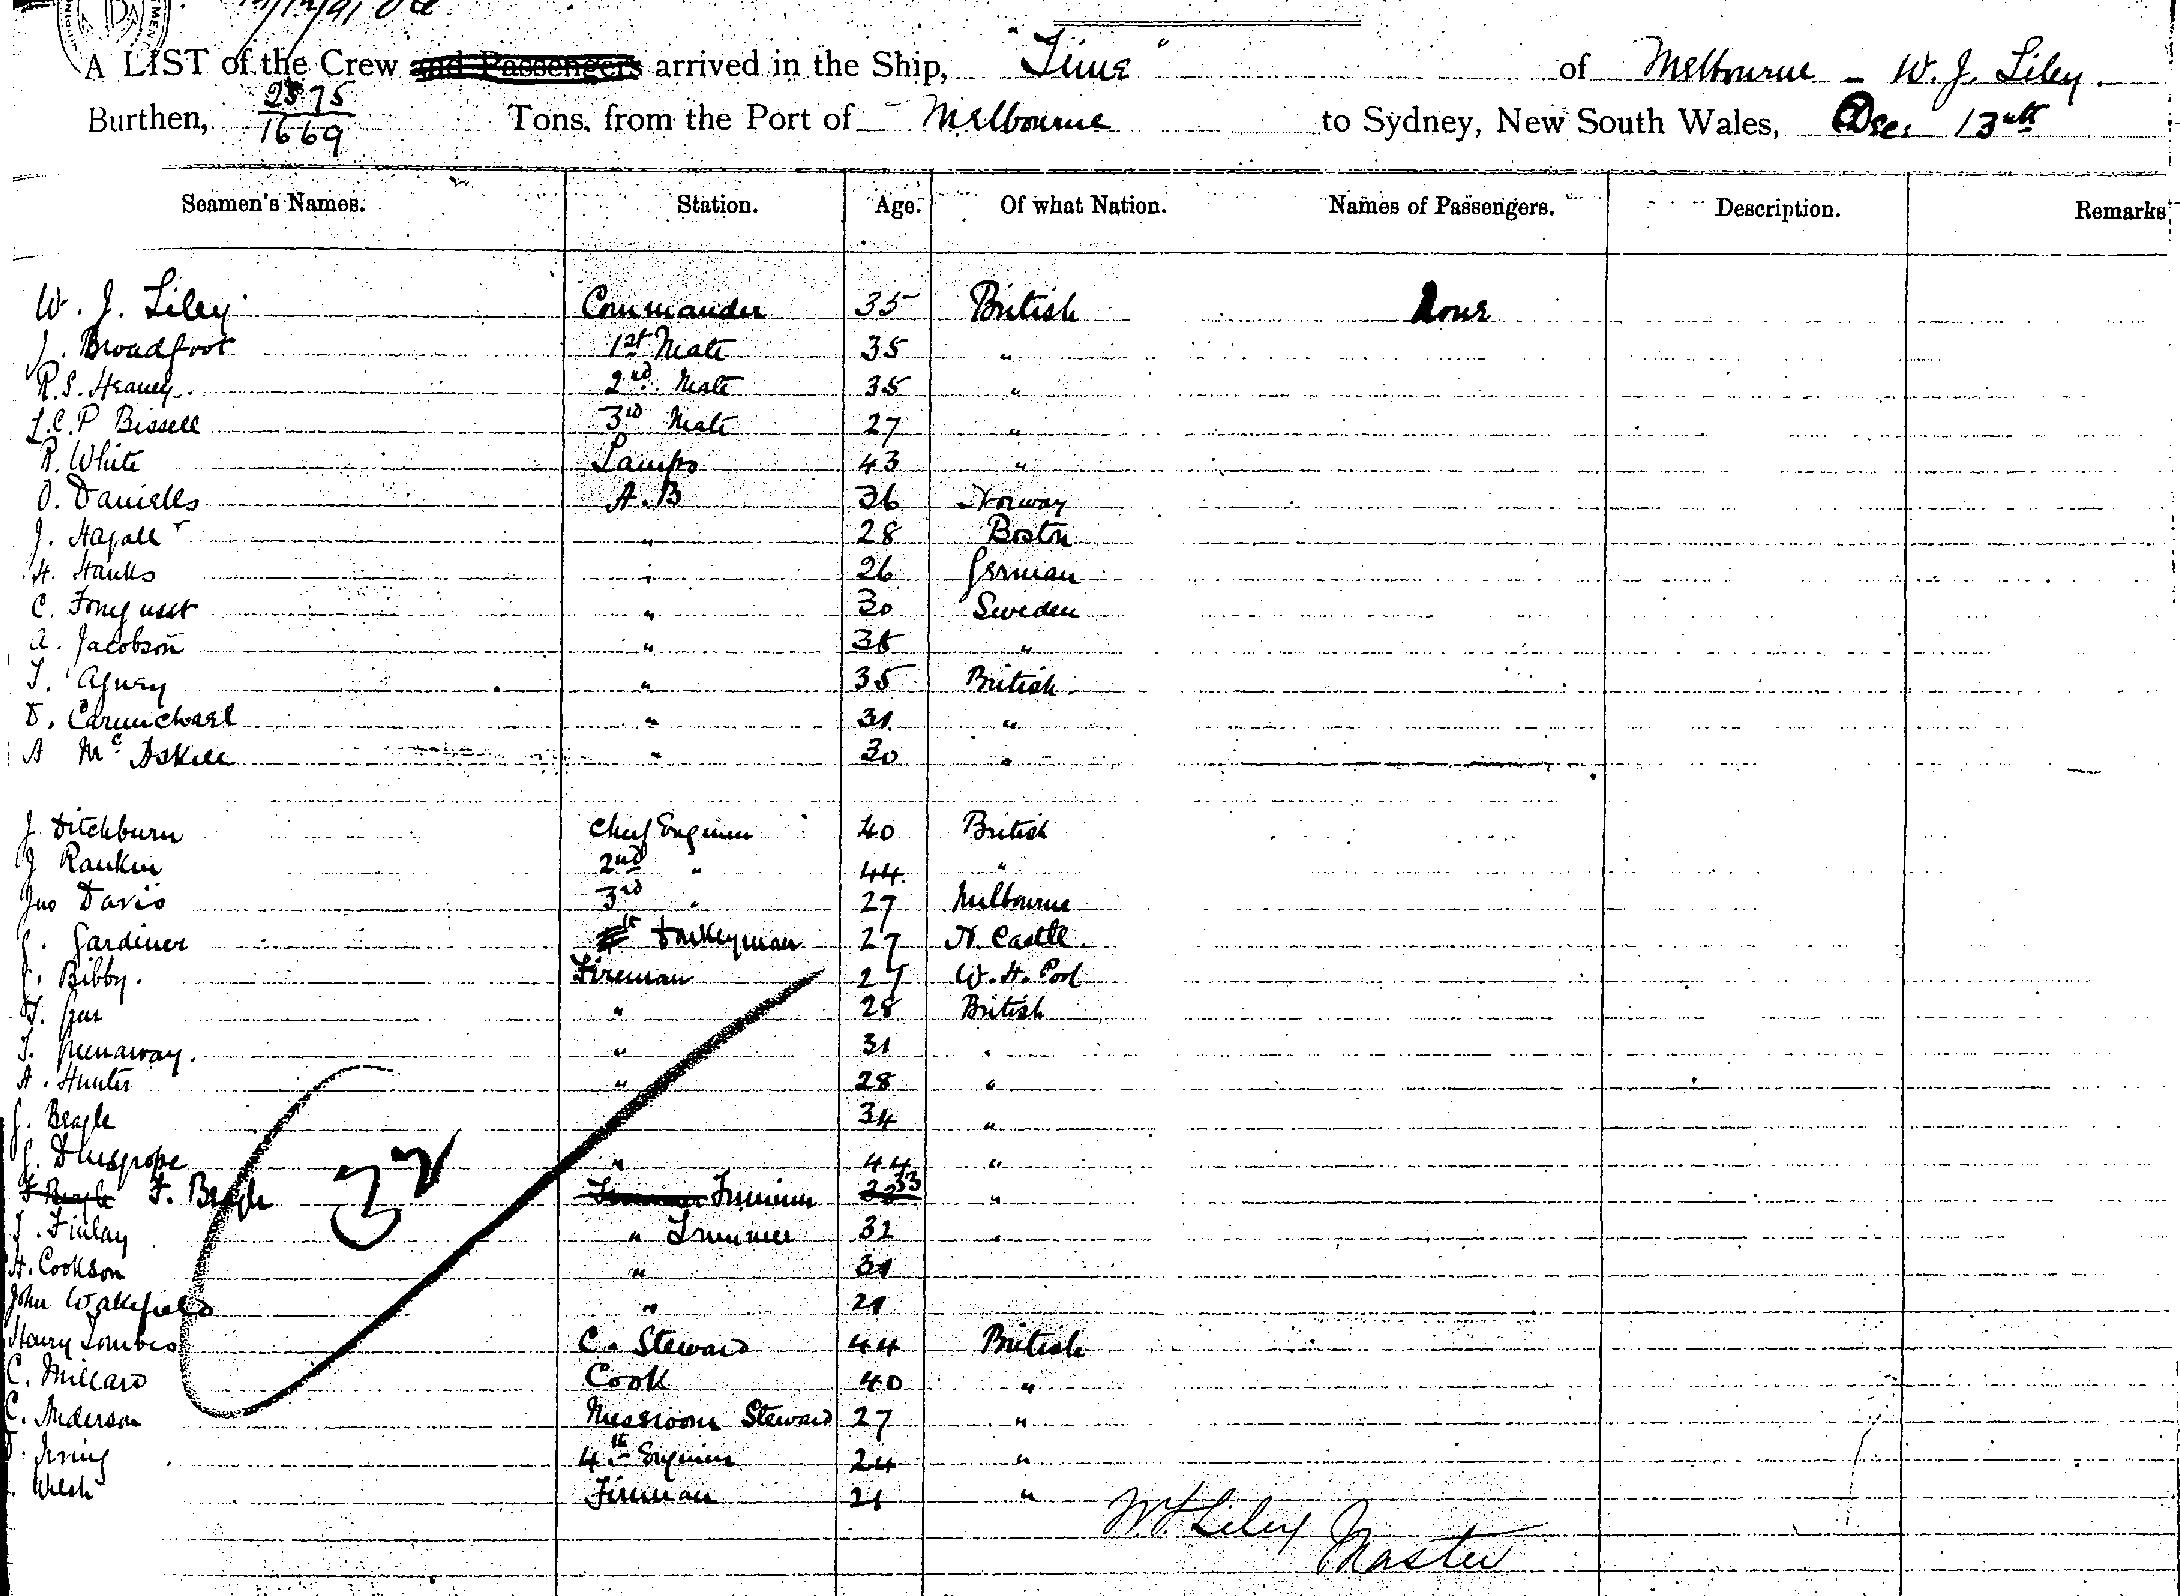 A LIST of the Crew and Passengers arrived in the Ship, "Time" of Melbourne - W. J. Liley.
Burthen, 2575 / 1669 Tons, from the Port of Melbourne to Sydney, New South Wales, Dec. 13th
Seamen's Names. Station. Age. Of what Nation. Names of Passengers. Description. Remarks
W. J. Liley Commander 35 British None
J. Broadfoot 1st Mate 35 "
R. S. Heaney 2nd Mate 35 "
L.C.P Bissell 3rd Mate 27 "
R. White Lamps 43 "
O. Daniells A.B 36 Norway
J. Hagall " 28 Boston
H. Hanks " 26 German
C. " 30 Sweden
A. Jacobson " 38 "
T. Agney " 35 British
D. Carmichael " 31 "
A McAskill " 30 "
J Ditchburn Chief Engineer 40 British
J Rankin 2nd " 44 "
Jno Davis 3rd " 27 Melbourne
J. Gardiner Donkeyman 27 N. Castle
J. Bibby. Fireman 27 W. H. Pool
T. Gee " 28 British
T. Greenaway. " 31 "
A. Hunter " 28 "
J. Beagle 34 "
J. " 44 "
F Beagle F. Beagle Trimmer 33 "
J. Finlay " Trimmer 32 "
H. Cookson " 31
John Wakefield " 21
32
Henry Tombs C. Steward 44 British
C. Millard Cook 40 "
C. Anderson Messroom Steward 27 "
Irving 4th Engineer 24 "
Welsh Fireman 21 "
W J Liley
Master